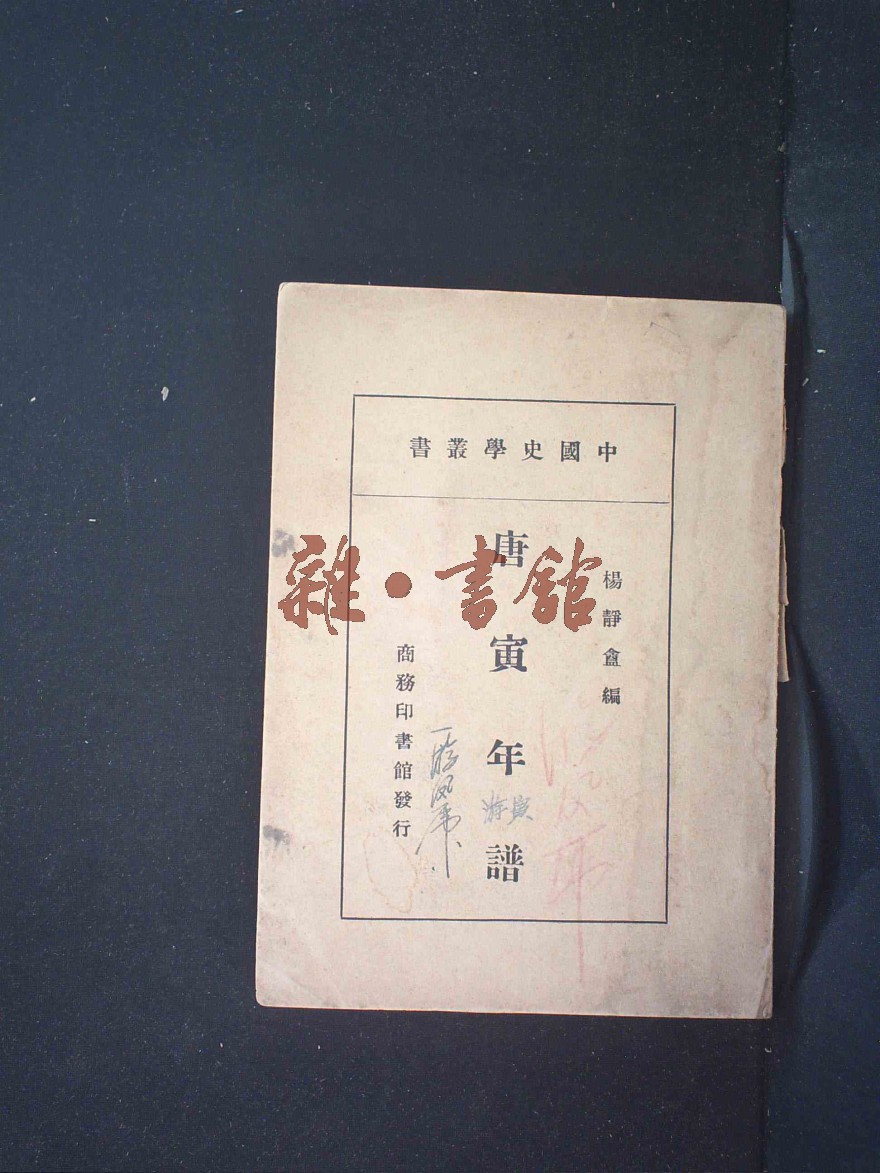 中國史學叢書
楊靜盦編
唐寅年譜
商務印書館發行
雜·書館